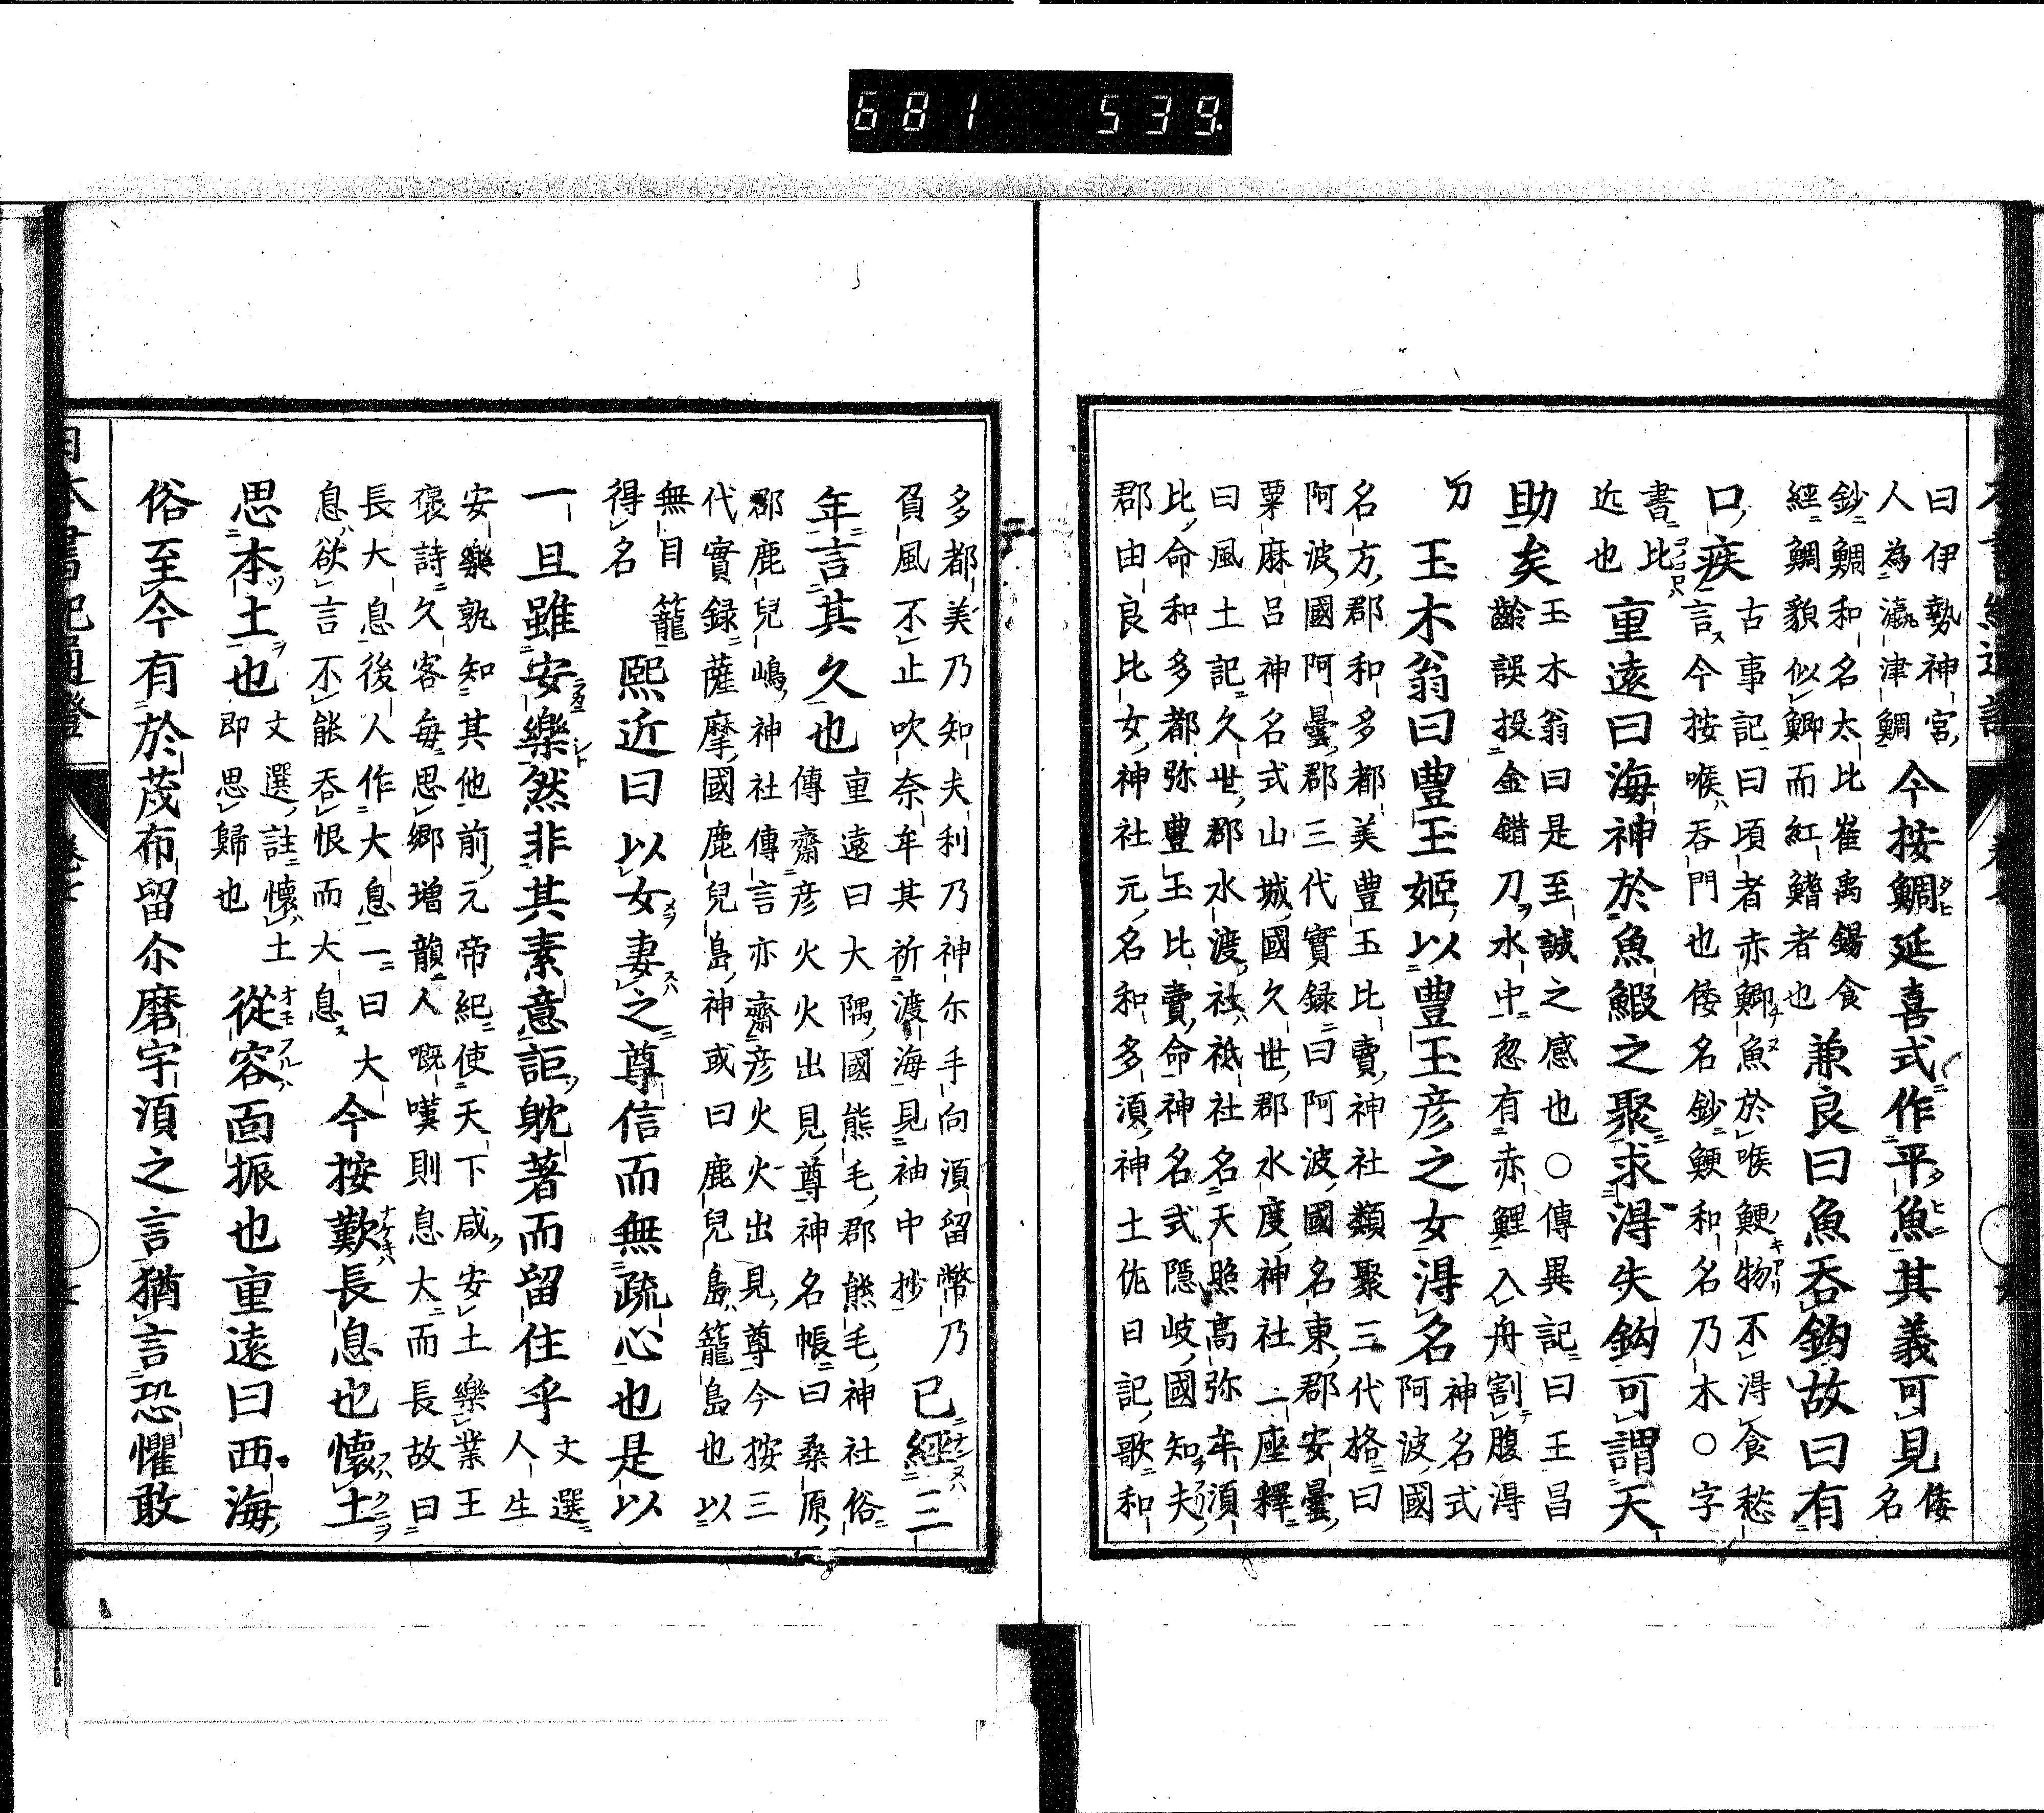 曰伊勢神宮
人為瀛津鯛
今按鯛延喜式作平魚其義可見
倭
名
鈔鯛和名太比崔禹錫食
經鯛貌似鯽而紅鰭者也
兼良曰魚吞鈎故曰有
口疾
古事記曰頃者赤鯽魚於喉鯁物不得食愁
言今按喉吞門也倭名鈔鯁和名乃木○字
書比
近也
重遠曰海神於魚鰕之聚求得失鈎可謂天
助矣
玉木翁曰是至誠之感也○傳異記曰王昌
齡誤投金錯刀水中忽有赤鯉入舟割腹得
刀
玉木翁曰豊玉姬以豊玉彦之女得名
神名式
阿波國
名方郡和多都美豊玉比賣神社類聚三代格曰
阿波國阿曇郡三代實録曰阿波國名東郡安曇
粟麻呂神名式山城國久世郡水度神社二座釋
曰風土記久世郡水渡社祇社名天照高弥牟須
比命和多都弥豊玉比賣命神名式隱岐國知夫
郡由良比女神社元名和多須神土佐日記歌和
多都美乃知夫利乃神尓手向須留幣乃
負風不止吹奈牟其祈渡海見袖中抄
已經三
年言其久也
重遠曰大隅國熊毛郡熊毛神社俗
傳齋彦火火出見尊神名帳曰桑原
郡鹿兒嶋神社傳言亦齋彦火火出見尊今按三
代實録薩摩國鹿兒島神或曰鹿兒島籠島也以
無目籠
得名
熙近曰以女妻之尊信而無疏心也是以
一旦雖安樂然非其素意詎耽著而留住乎
文選
人生
安樂孰知其他前元帝紀使天下咸安土樂業王
褒詩久客毎思郷増韻人嘅嘆則息大而長故曰
長大息後人作大息一曰大
息欲言不能吞恨而大息
今按歎長息也懷土
思本土也
文選註懷土
即思歸也
從容面振也重遠曰西海
俗至今有於茂布留尓磨宇須之言猶言恐懼敢
日本書紀通證
681 539.